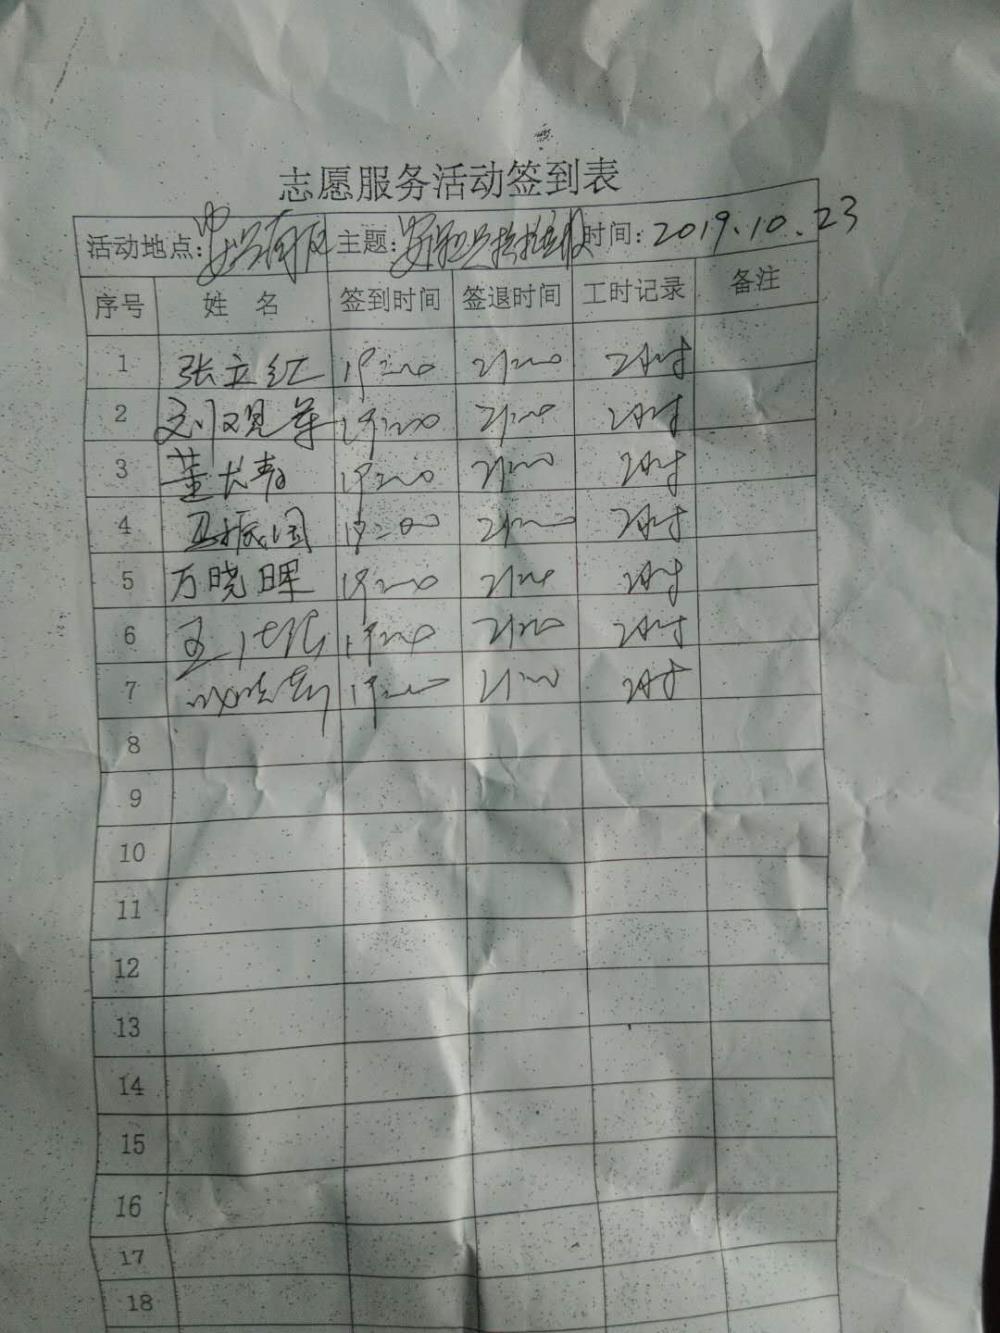 志愿服务活动签到表
活动地点: 主题: 时间: 2019.10.23
序号 姓 名 签到时间 签退时间 工时记录 备注
1 张立红 19:00 21:00 2小时
2 刘观军 19:00 21:00 2小时
3 董长青 19:00 21:00 2小时
4 振国 19:00 21:00 2小时
5 万晓晖 19:00 21:00 2小时
6 王 19:00 21:00 2小时
7 19:00 21:00 2小时
8
9
10
11
12
13
14
15
16
17
18